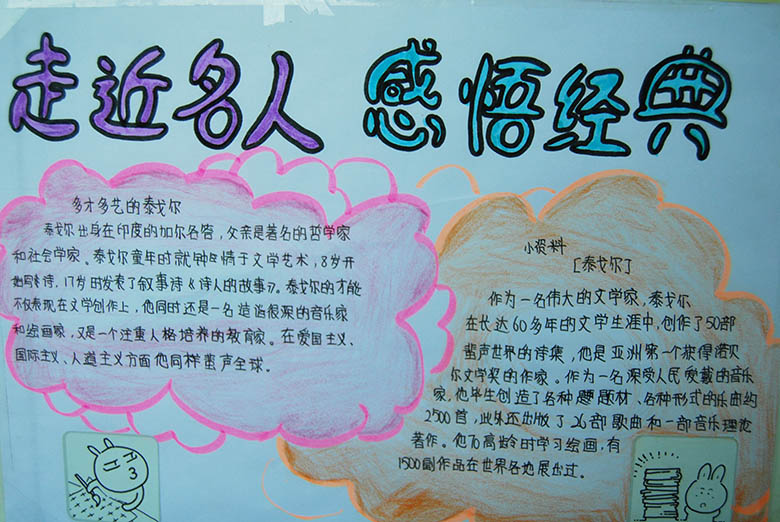 走近名人 感悟经典
多才多艺的泰戈尔
泰戈尔出身在印度的加尔各答，父亲是著名的哲学家
和社会学家。泰戈尔童年时就钟情于文学艺术，8岁开
始写诗，17岁时发表了叙事诗《诗人的故事》。泰戈尔的才能
不仅表现在文学创作上，他同时还是一名造诣很深的音乐家
和绘画家，又是一个注重人格培养的教育家。在爱国主义、
国际主义、人道主义方面他同样蜚声全球。
小资料
[泰戈尔]
作为一名伟大的文学家，泰戈尔
在长达60多年的文学生涯中，创作了50部
蜚声世界的诗集，他是亚洲第一个获得诺贝
尔文学奖的作家。作为一名深受人民爱戴的音乐
家，他毕生创造了各种题题材、各种形式的乐曲约
2500首，此外还出版了26部歌曲和一部音乐理论
著作。他70高龄时学习绘画，有
1500副作品在世界各地展出过。